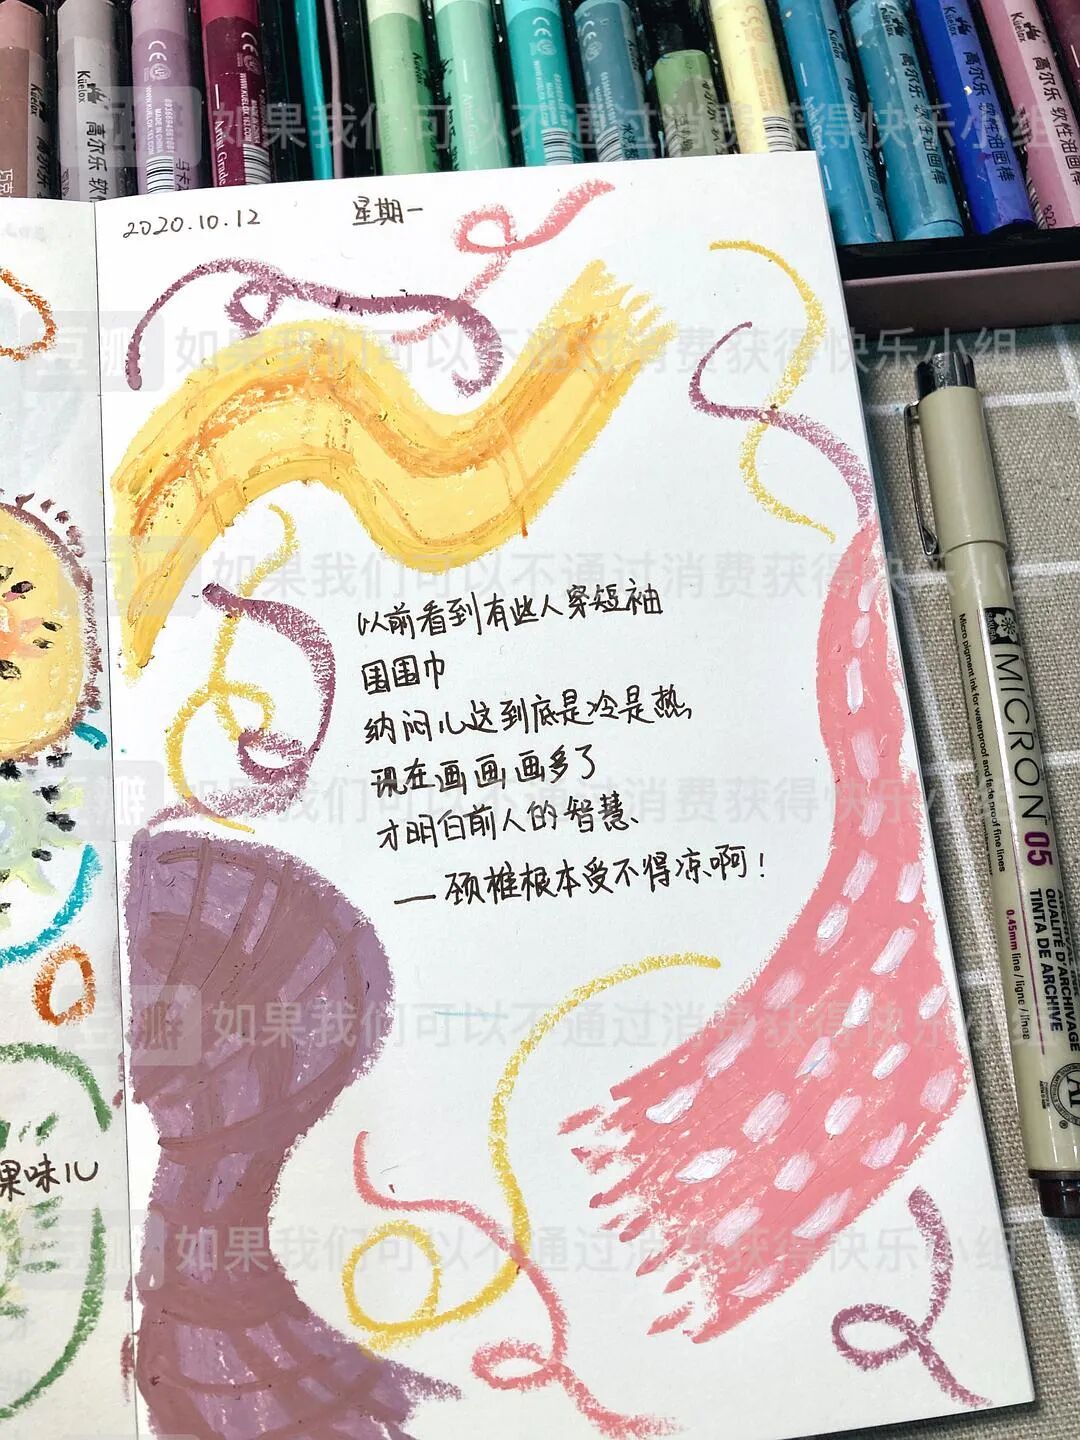 Küelox
高尔乐 软性油画棒
Artist Grade
MADE IN CHINA
2020.10.12 星期一
以前看到有些人穿短袖
围围巾
纳闷儿这到底是冷是热
现在画画画多了
才明白前人的智慧、
—颈椎根本受不得凉啊！
果味儿
Micro pigment ink for waterproof and fade proof fine lines
MICRON 05
0.45mm line / ligne / líneas
QUALITÉ D'ARCHIVAGE
TINTA DE ARCHIVE
豆瓣 如果我们可以不通过消费获得快乐小组
豆瓣 如果我们可以不通过消费获得快乐小组
如果我们可以不通过消费获得快乐小组
瓣 如果我们可以不通过消费获得快乐小组
豆瓣 如果我们可以不通过消费获得快乐小组
豆瓣 如果我们可以不通过消费获得快乐小组